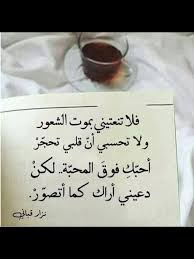 فلا تنعتيني بموت الشعور
ولا تحسبي أنّ قلبي تحجّرْ
أحبّكِ فوقَ المحبّة.. لكنْ
دعيني أراك كما أتصوّرْ.
نزار قباني